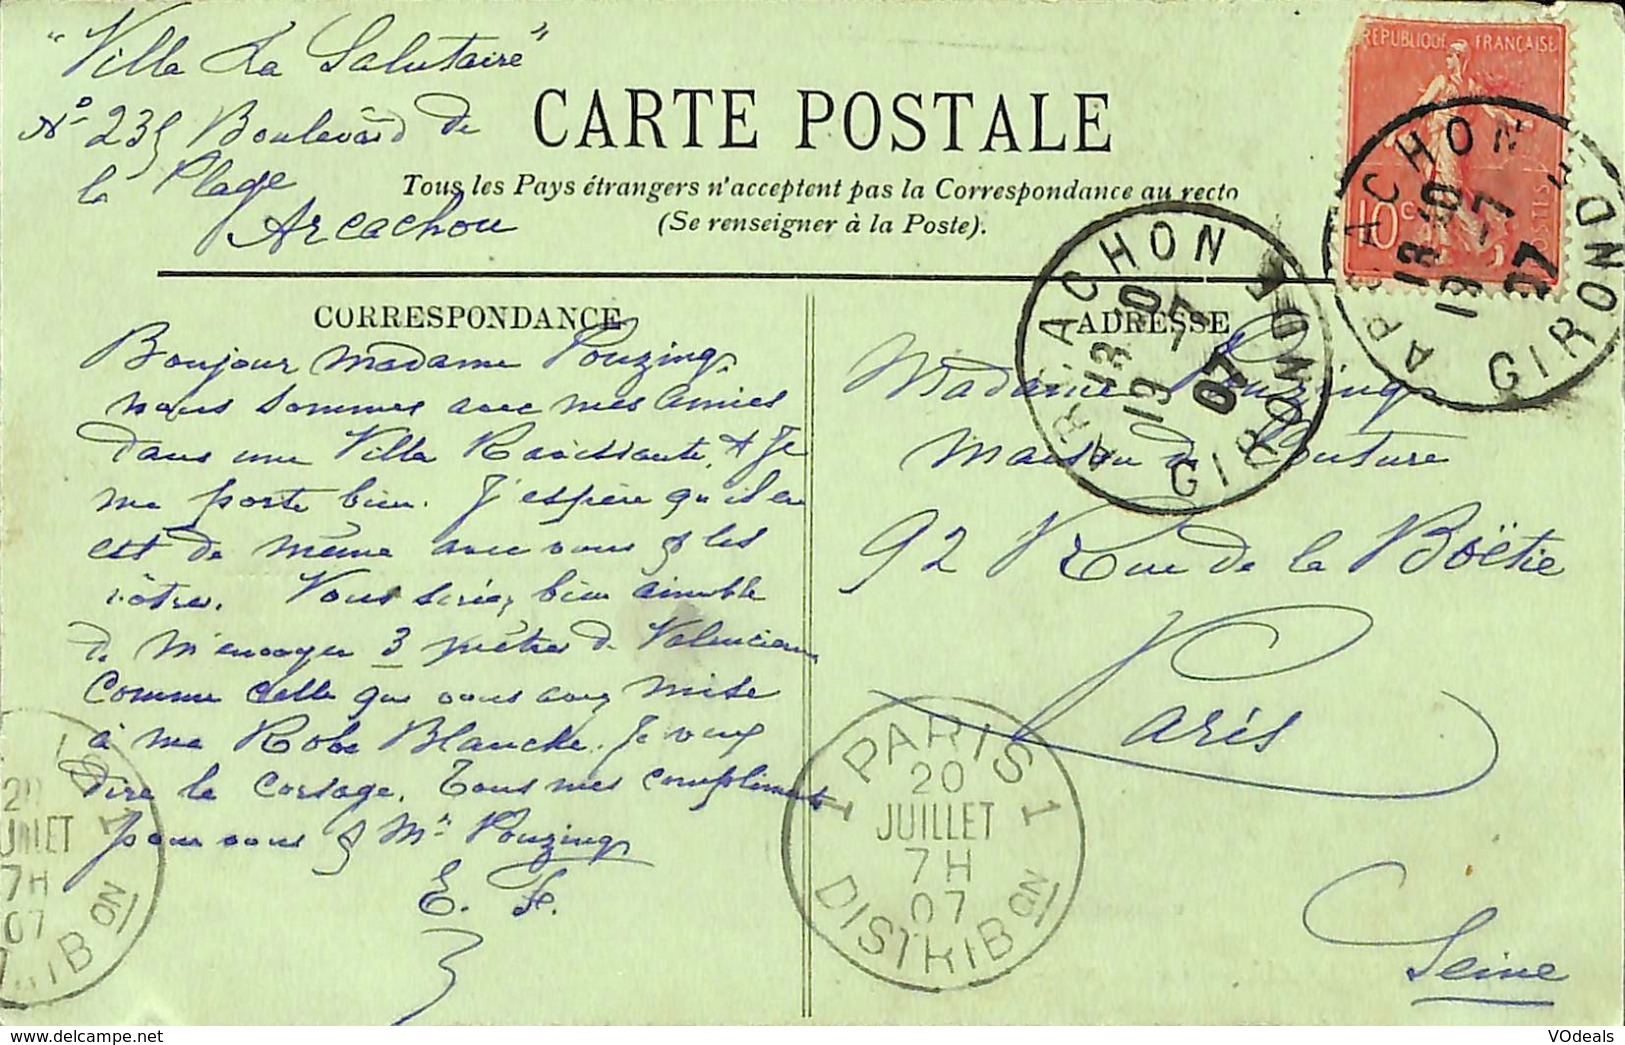 "Villa La Salutaire"
No 235 Boulevard de
la Plage
Arcachon
CARTE POSTALE
Tous les Pays étrangers n'acceptent pas la Correspondance au recto
(Se renseigner à la Poste).
REPUBLIQUE FRANÇAISE
10 c
POSTES
ARCACHON
13 30
19 -7
07
GIRONDE
ARCACHON
13 30
19 -7
07
GIRONDE
CORRESPONDANCE
Bonjour Madame Pouzing
nous sommes avec mes amies
dans une Villa Ravissante, & Je
me porte bien. J'espère qu'il en
est de même avec vous & les
vôtres. Vous seriez bien aimable
de m'envoyer 3 mètres de Valencienne
Comme celle que vous avez mise
à ma Robe Blanche. Je veux
dire le Corsage. Tous mes compliments
pour vous & Mr Pouzing
E. F.
ADRESSE
Madame Pouzing
Maison de Couture
92 Rue de la Boëtie
Paris
Seine
PARIS 1
20
JUILLET
7H
07
DISTRIBON
20
JUILLET
7H
07
IBON
VOdeals